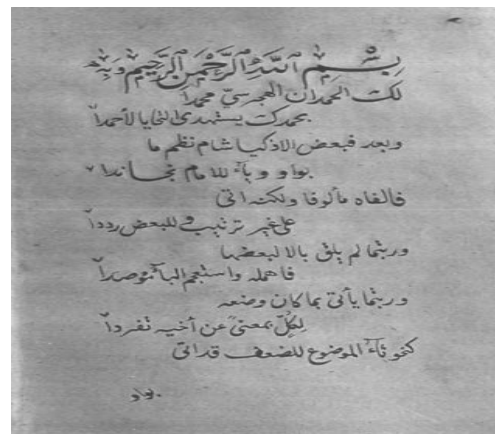 بسم الله الرحمن الرحيم وبه
لك الحمد ان الهجرسيّ محمداً
بحمدك يستهدي لأحمداً
وبعد فبعض الاذكيا شام نظم ما
بواو وياء للامام
فالفاه مألوفا ولكنه اتى
على غير ترتيب وللبعض ردداً
وربتما لم يلق بالا لبعضها
فاهمله واستعجم موصداً
وربتما يأتي بما كان وضعه
لِكُلّ بمعنى عن أخيه تفرداً
كنحو الموضوع للضعف قد اتى
بواو